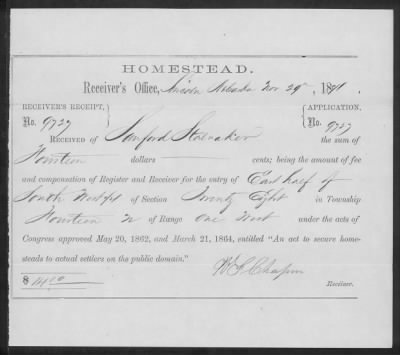 HOMESTEAD.
Receiver's Office, Lincoln Nebraska Nov 29th, 1871.
RECEIVER'S RECEIPT, APPLICATION,
No. 9727 No. 9727
RECEIVED of Sanford Stalnaker the sum of
Fourteen dollars cents; being the amount of fee
and compensation of Register and Receiver for the entry of East half of
South West ¼ of Section Twenty Eight in Township
Fourteen N of Range One West under the acts of
Congress approved May 20, 1862, and March 21, 1864, entitled "An act to secure home-
steads to actual settlers on the public domain."
$ 14.00
Chapin
Receiver.